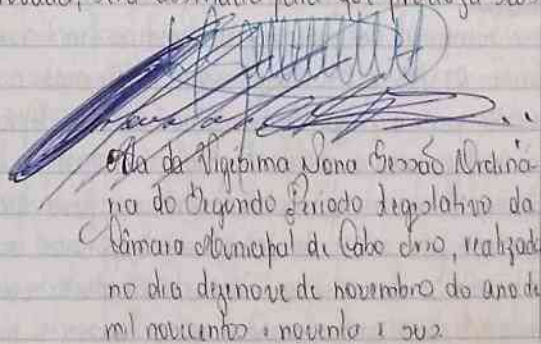 para que produza seus
Ata da Vigésima Nona Sessão Ordiná-
ria do Segundo Período Legislativo da
Câmara Municipal de Cabo Frio, realizada
no dia dezenove de novembro do ano de
mil novecentos e noventa e seis.